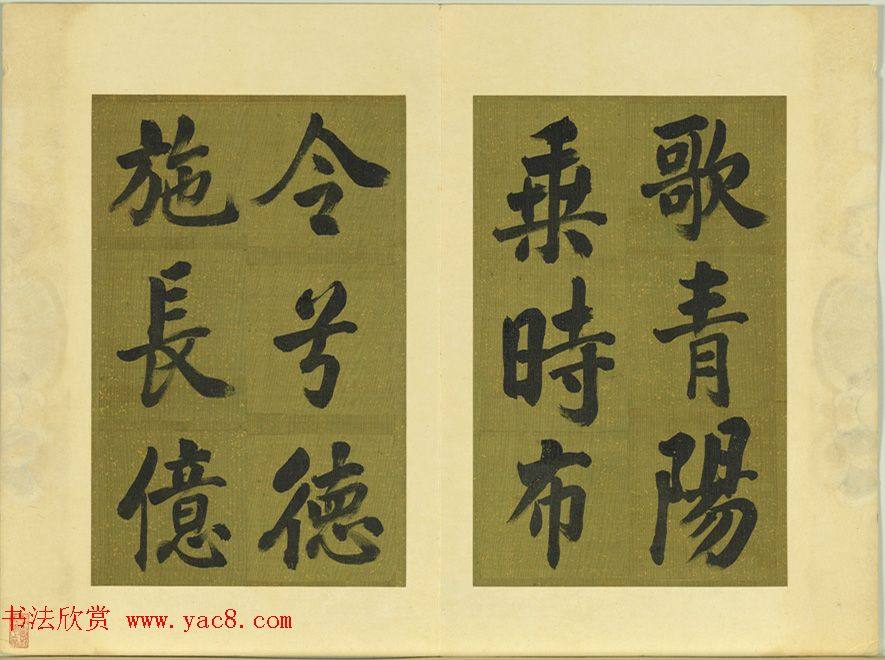 歌青陽
乗時布
令兮德
施長億
书法欣赏 www.yac8.com